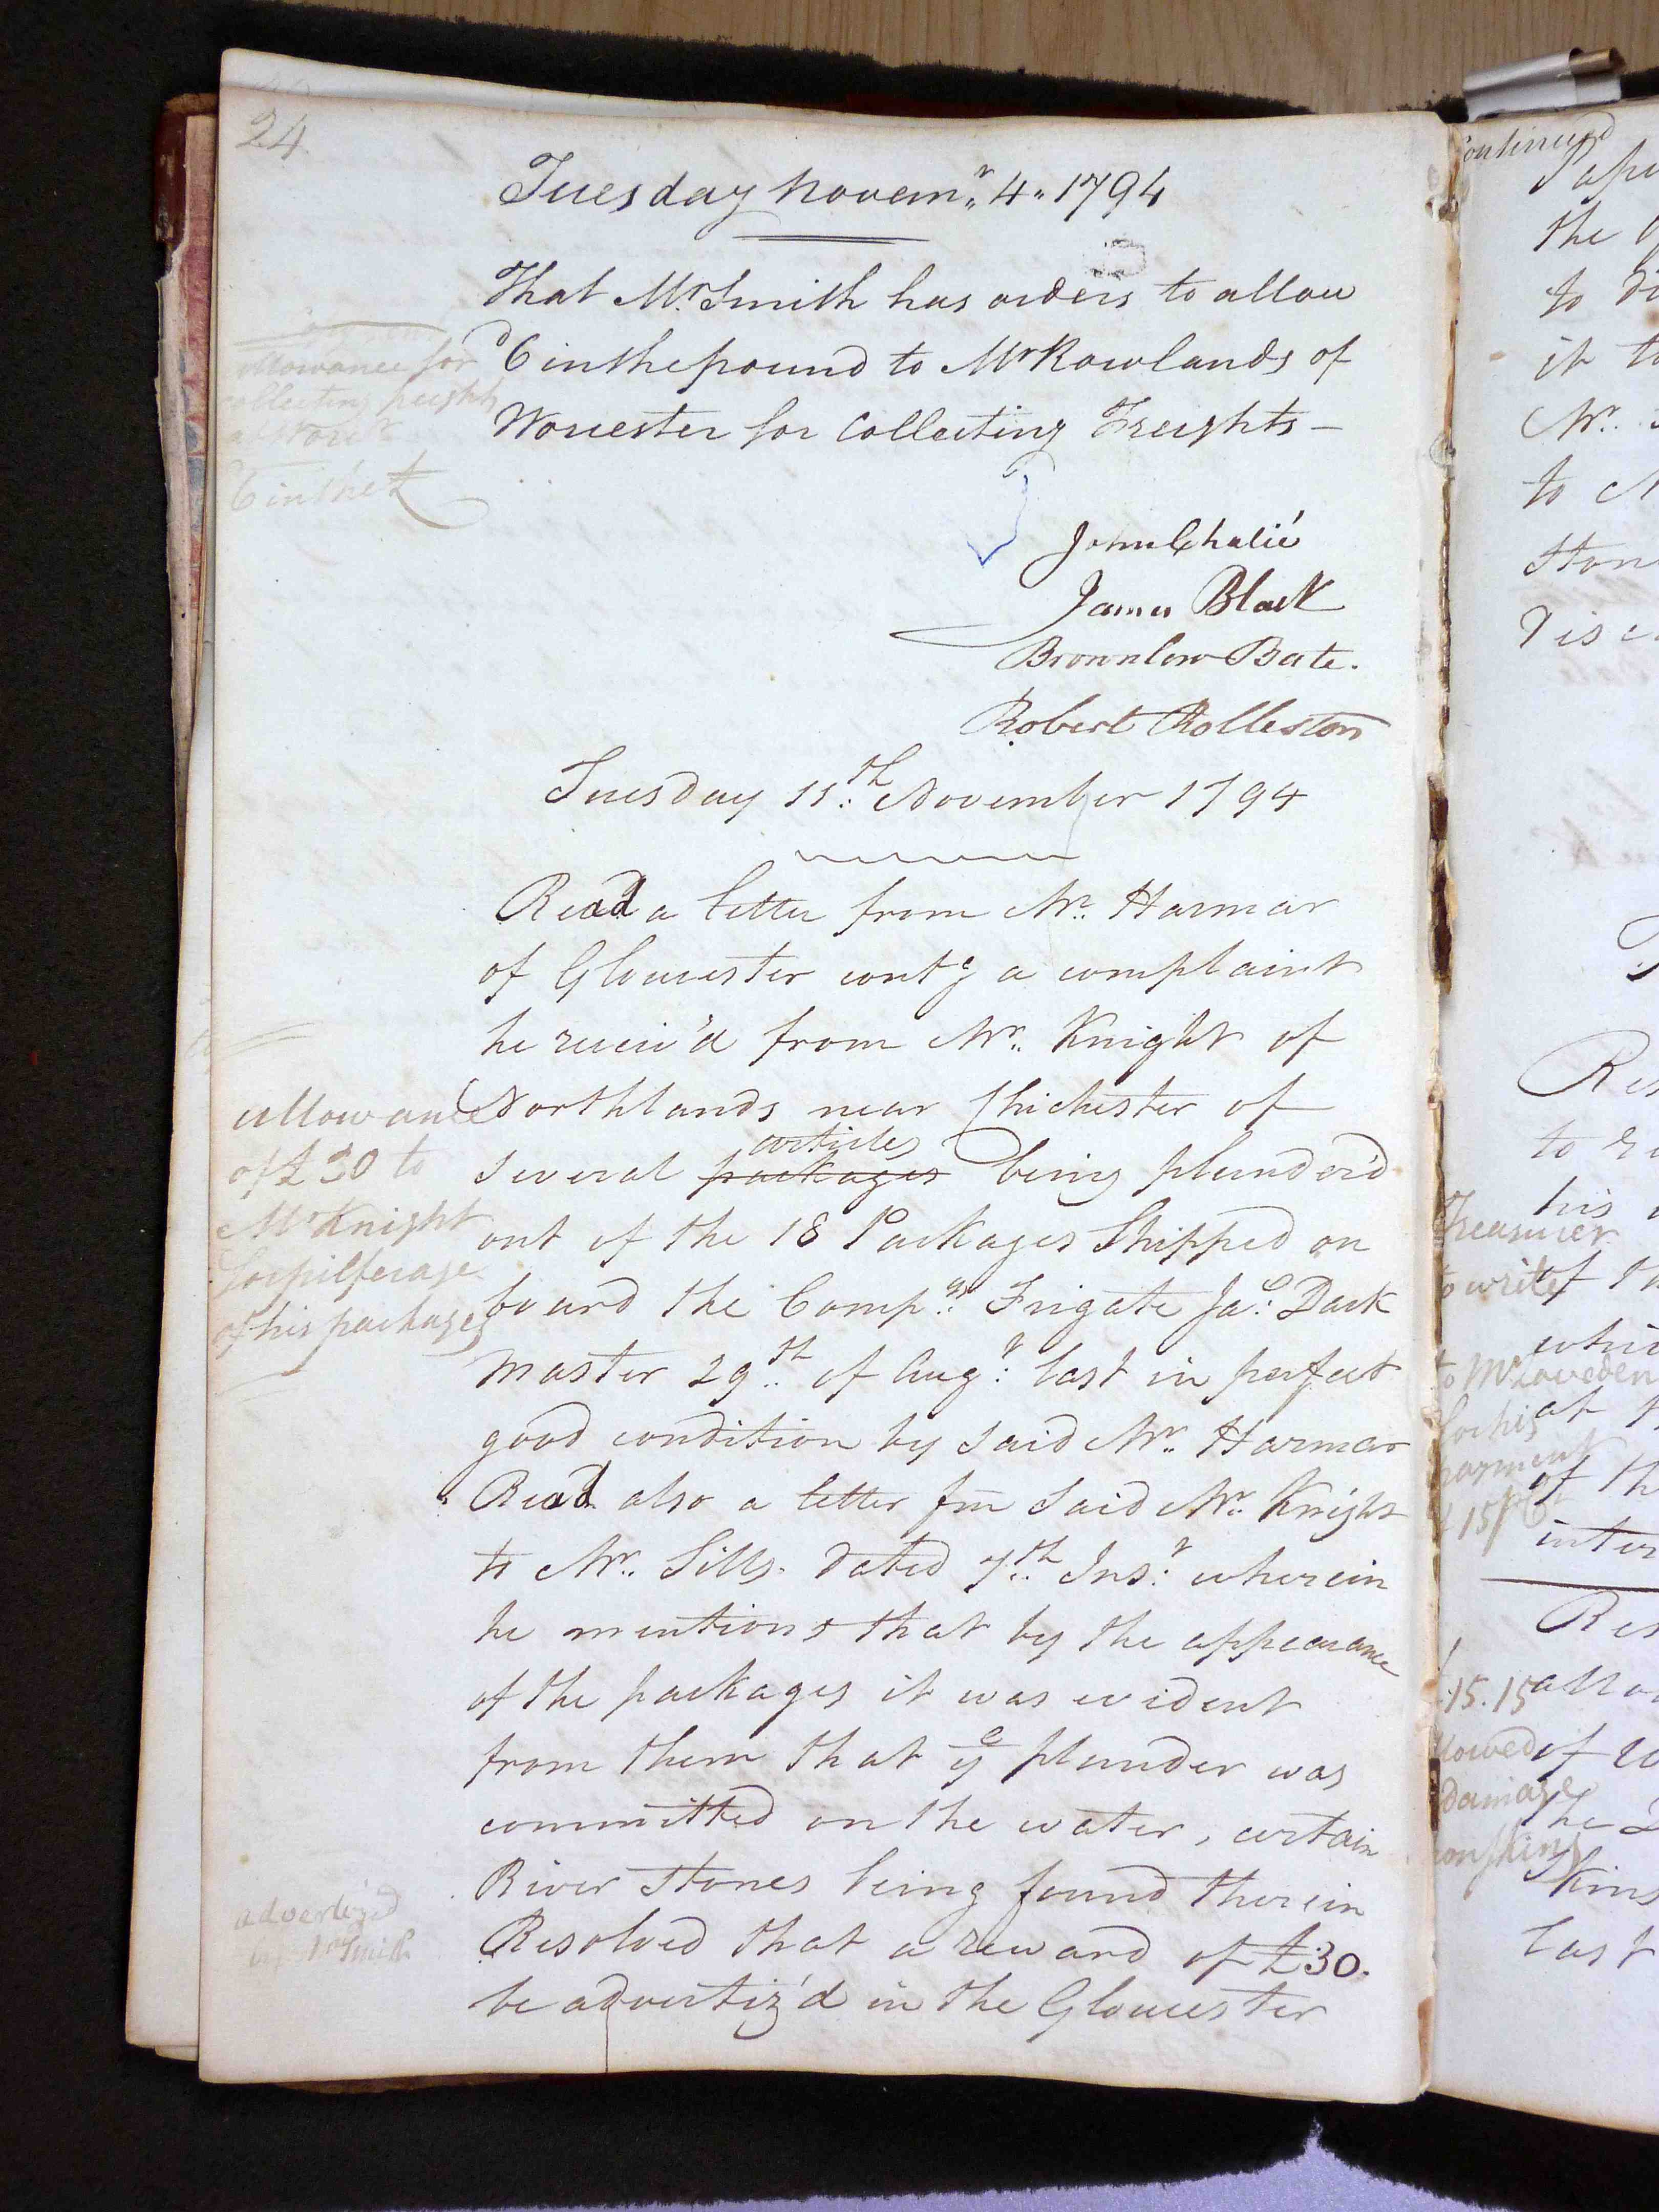 24
Tuesday Novem.r 4. 1794
That Mr. Smith has orders to allow
allowance for
collecting freights
6 in the £
6d in the pound to Mr Rowlands of
Worcester for Collecting Freights —
John Chalié
James Black
Brownlow Bate.
Robert Rolleston
Tuesday 11:th November 1794
Read a letter from Mr. Harmar
of Gloucester contg a complaint
he receiv'd from Mr. Knight of
allowance
of £30 to
Mr Knight
for pilferage
of his packages
Northlands near Chichester of
articles
several packages being plunder'd
out of the 18 Packages Shipped on
board the Comp.ys Frigate Jas: Dark
Master 29.th of Aug.t last in perfect
good condition by said Mr. Harmar
Read also a letter fm said Mr. Knight
to Mr. Sills. dated 7.th Inst: wherein
he mentions that by the appearance
of the packages it was evident
from them that ye plunder was
committed on the water, certain
River Stones being found therein
advertized
by Mr Smith
Resolved that a reward of £30.
be advertiz'd in the Gloucester
Continued
the
to
it to
Mr.
to
Ston
Res
to
his
Treasurer
to write
of th
to Mr Loveden
for his
at
payment
of th
inter
Res
15.15
of
damage
the
last